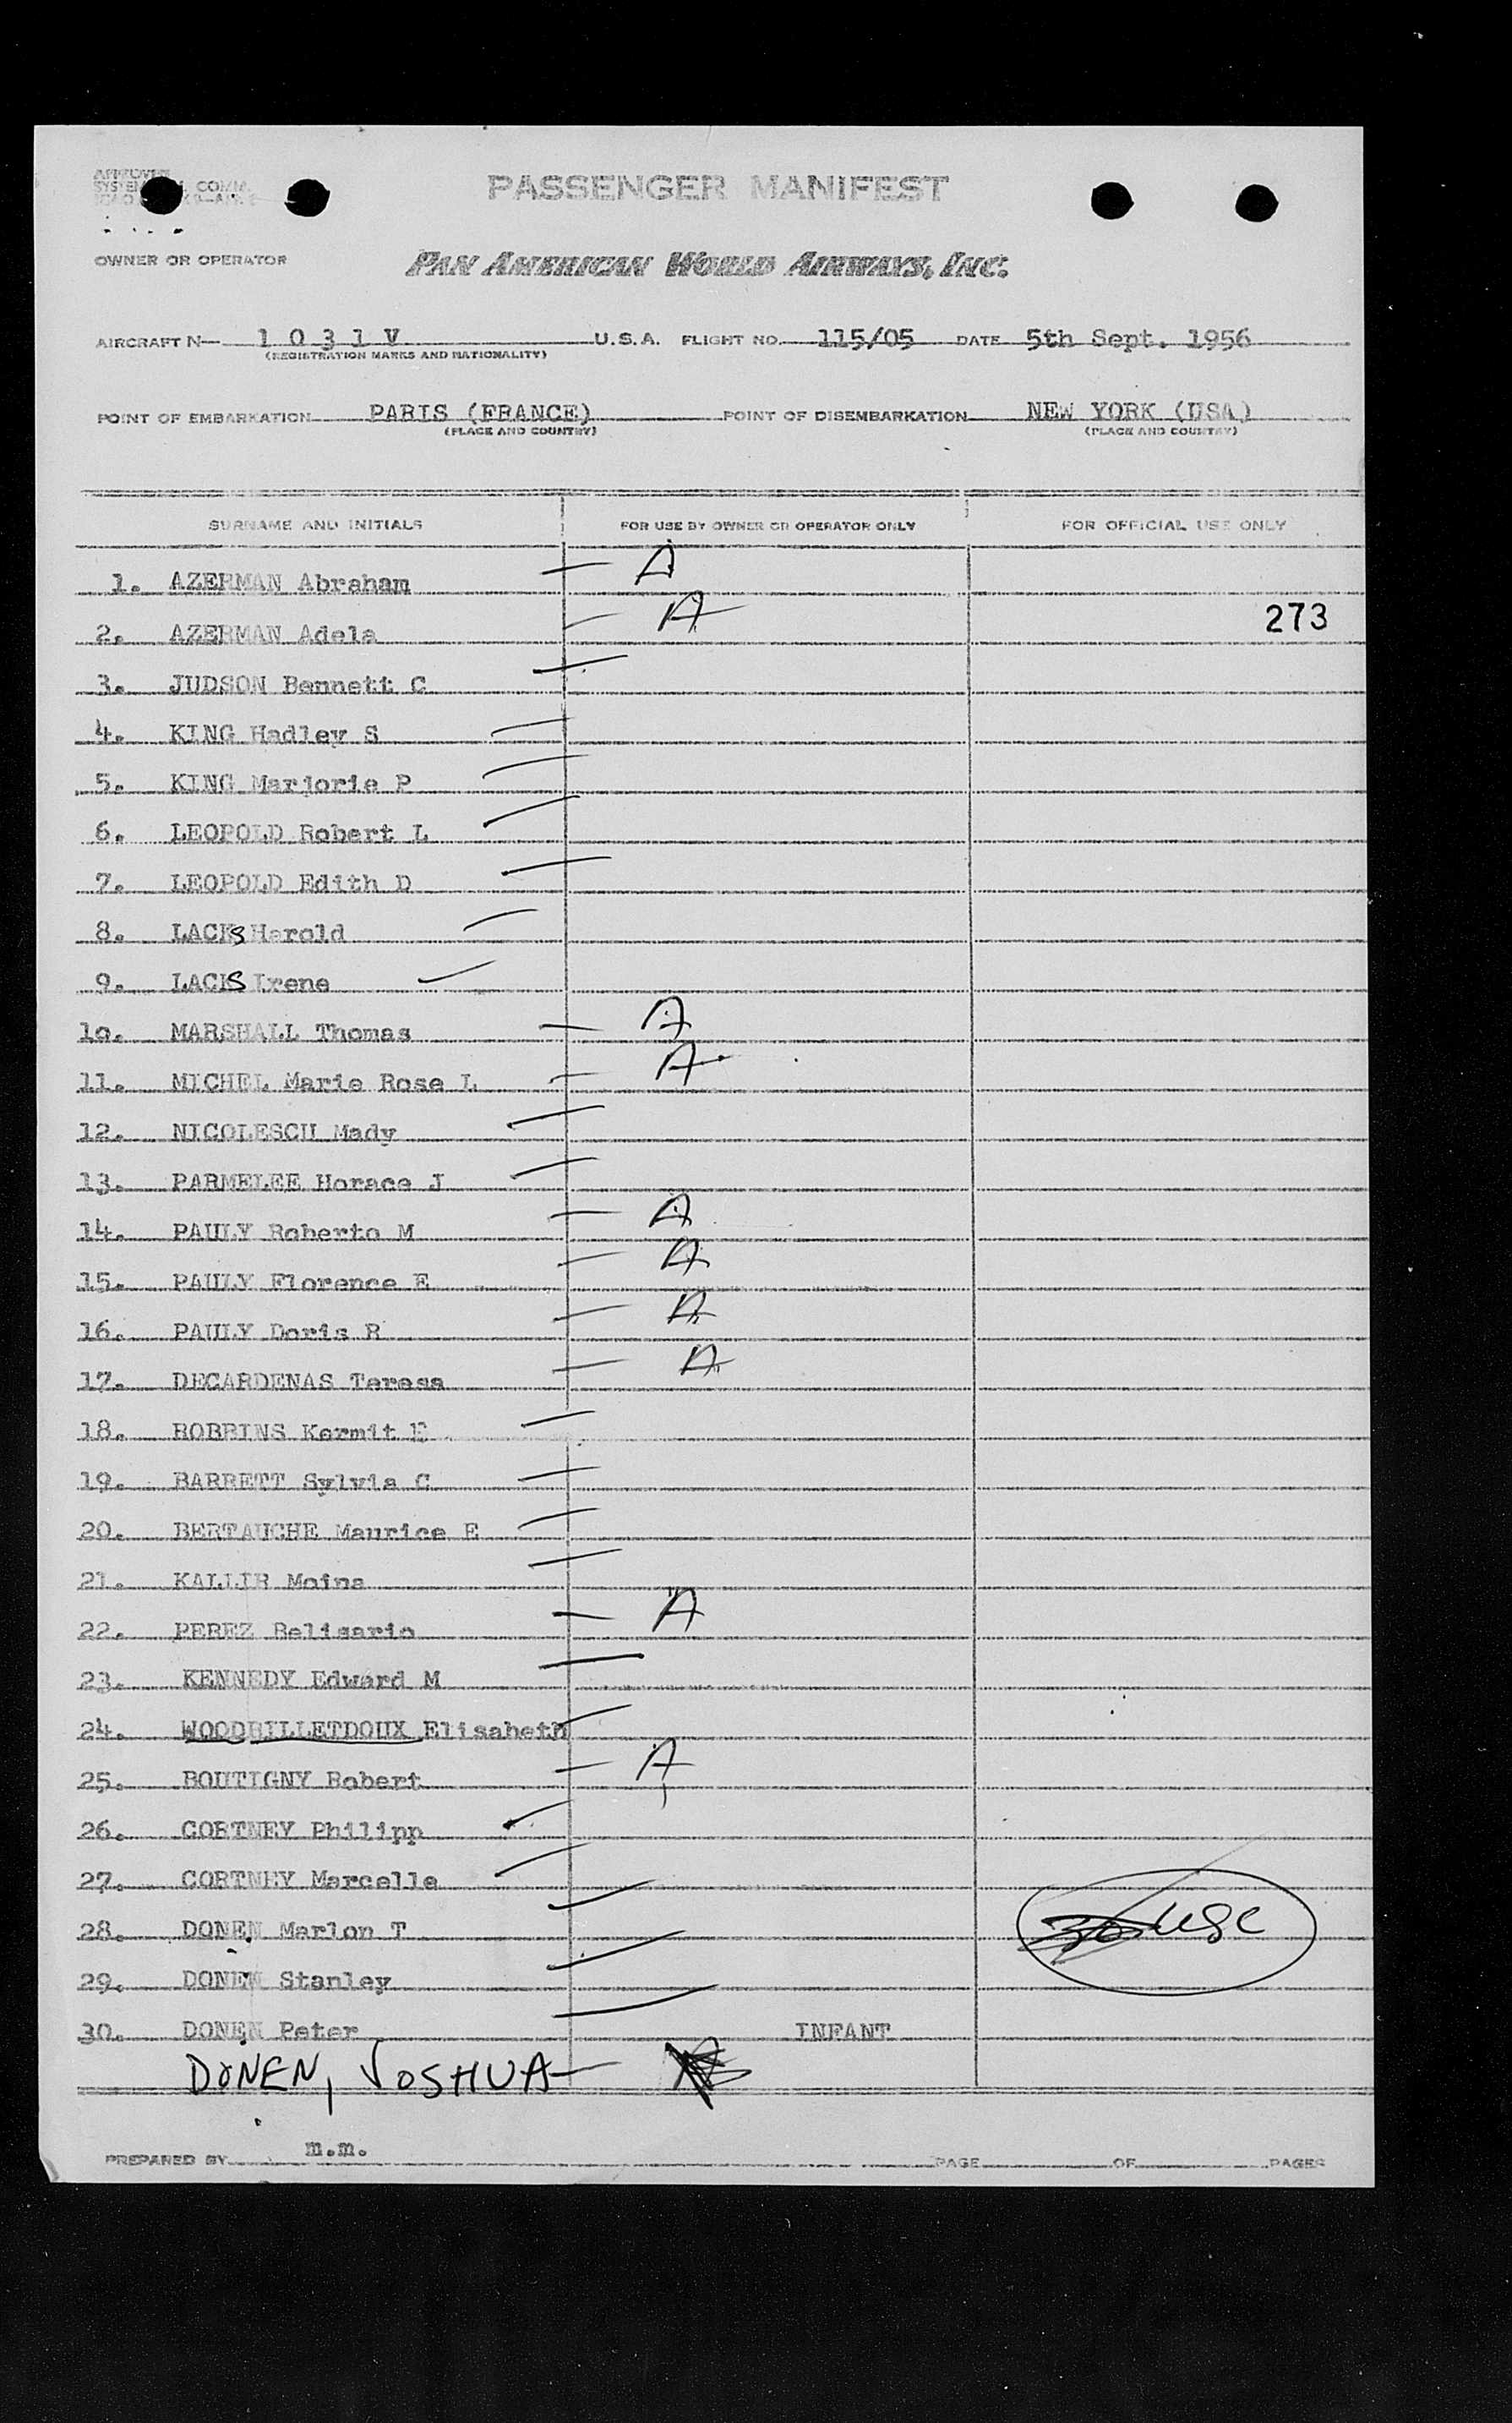 APPROVED
SYSTEM COMM.
PASSENGER MANIFEST
OWNER OR OPERATOR PAN AMERICAN WORLD AIRWAYS, INC.
AIRCRAFT N— 1 0 3 1 V U.S.A. FLIGHT NO. 115/05 DATE 5th Sept. 1956
(REGISTRATION MARKS AND NATIONALITY)
POINT OF EMBARKATION PARIS (FRANCE) POINT OF DISEMBARKATION NEW YORK (USA)
(PLACE AND COUNTRY) (PLACE AND COUNTRY)
SURNAME AND INITIALS FOR USE BY OWNER OR OPERATOR ONLY FOR OFFICIAL USE ONLY
1. AZERMAN Abraham — A
2. AZERMAN Adela — A 273
3. JUDSON Bennett C
4. KING Hadley S
5. KING Marjorie P
6. LEOPOLD Robert L
7. LEOPOLD Edith D
8. LACKS Harold
9. LACKS Irene
10. MARSHALL Thomas — A
11. MICHEL Marie Rose L — A
12. NICOLESCU Mady
13. PARMELEE Horace J
14. PAULY Roberto M — A
15. PAULY Florence E — A
16. PAULY Doris R — A
17. DECARDENAS Teresa — A
18. ROBBINS Kermit E
19. BARRETT Sylvia C
20. BERTAUCHE Maurice E
21. KALLIR Moina
22. PEREZ Belisario — A
23. KENNEDY Edward M
24. WOODBILLETDOUX Elisabeth
25. BOUTIGNY Robert — A
26. CORTNEY Philipp
27. CORTNEY Marcelle
28. DONEN Marlon T USC
29. DONEN Stanley
30. DONEN Peter INFANT
DONEN, JOSHUA —
PREPARED BY m.m. PAGE OF PAGES